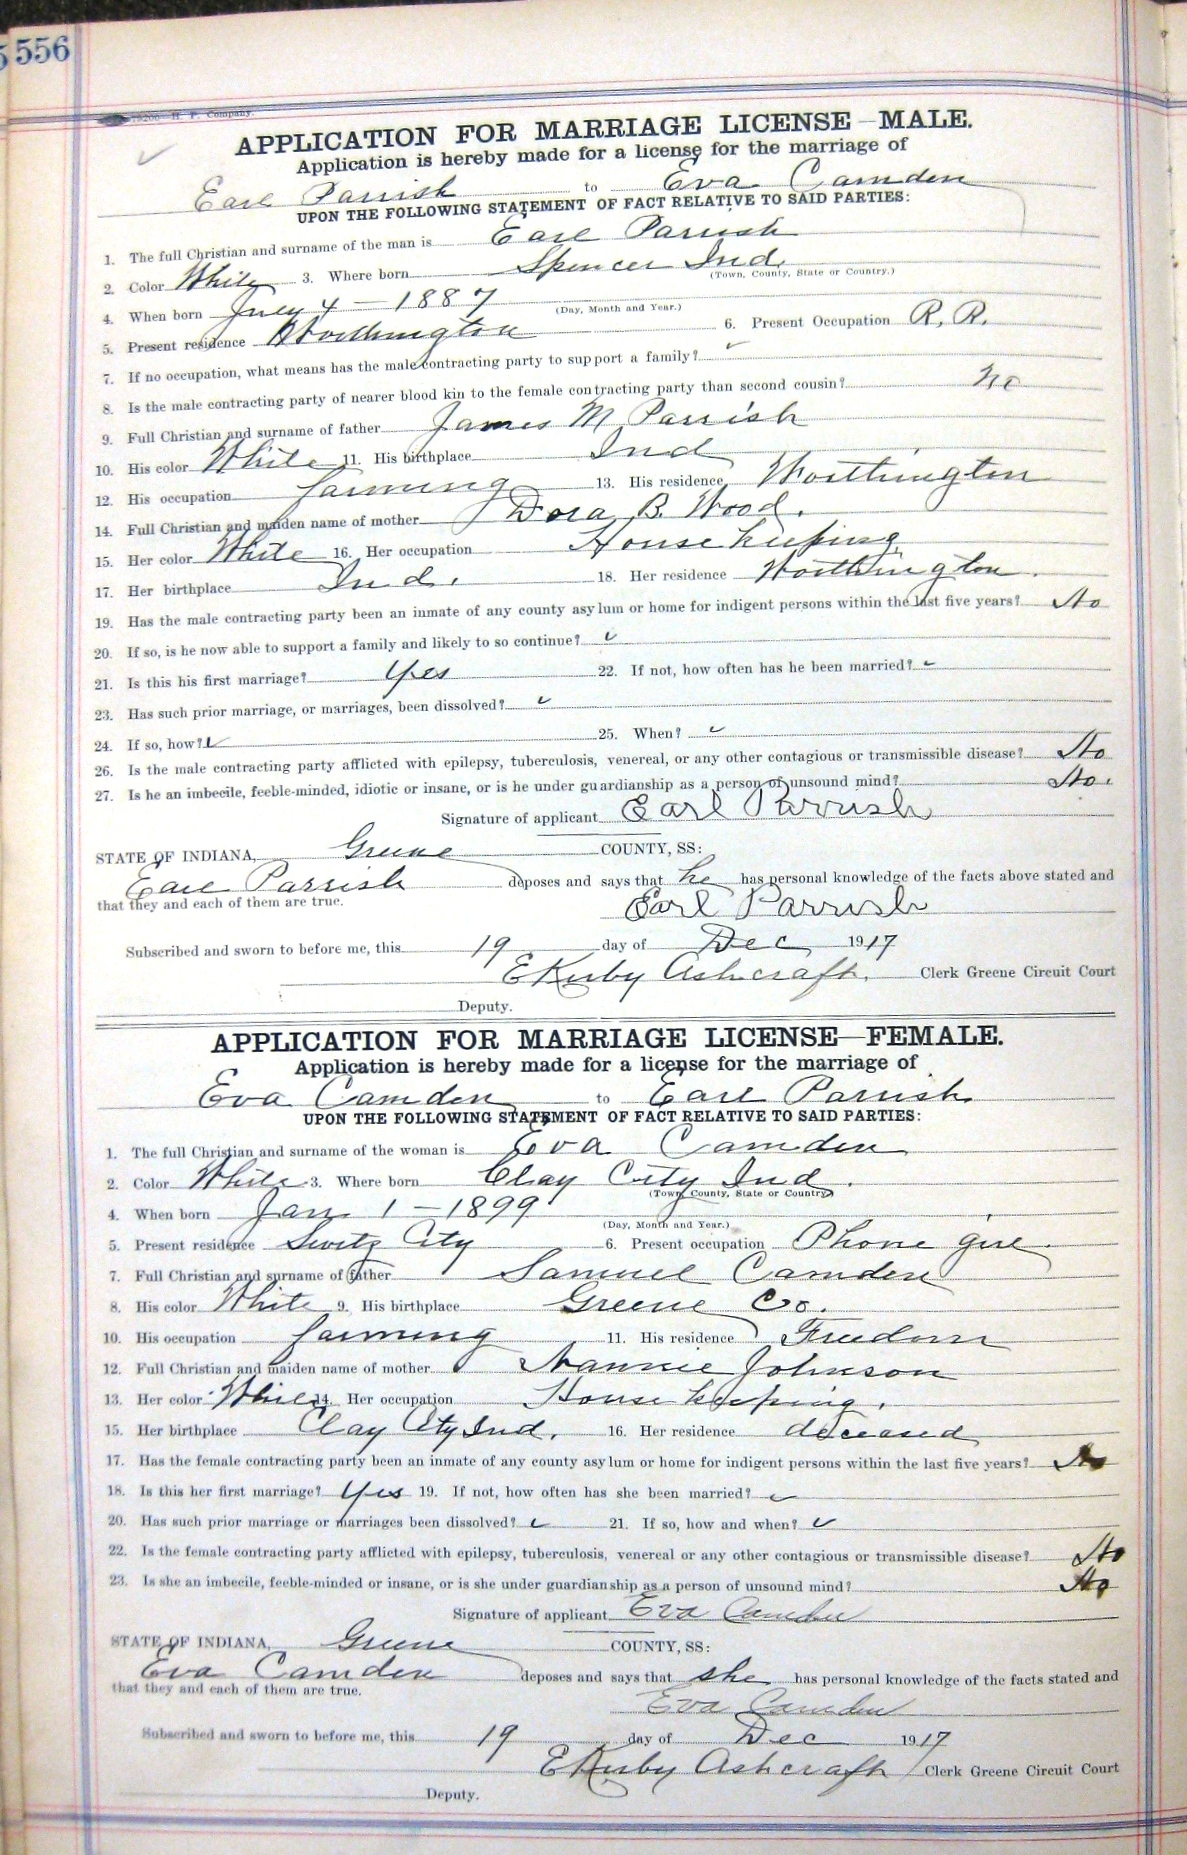 556
H. P. Company.
APPLICATION FOR MARRIAGE LICENSE—MALE.
Application is hereby made for a license for the marriage of
Earl Parrish to Eva Camden
UPON THE FOLLOWING STATEMENT OF FACT RELATIVE TO SAID PARTIES:
1. The full Christian and surname of the man is Earl Parrish
2. Color White 3. Where born Spencer Ind.
(Town, County, State or Country.)
4. When born July 4 — 1887 (Day, Month and Year.)
5. Present residence Worthington 6. Present Occupation R. R.
7. If no occupation, what means has the male contracting party to support a family? ✓
8. Is the male contracting party of nearer blood kin to the female contracting party than second cousin? no
9. Full Christian and surname of father James M Parrish
10. His color White 11. His birthplace Ind
12. His occupation farming 13. His residence Worthington
14. Full Christian and maiden name of mother Dora B. Wood.
15. Her color White 16. Her occupation House keeping
17. Her birthplace Ind. 18. Her residence Worthington.
19. Has the male contracting party been an inmate of any county asylum or home for indigent persons within the last five years? No
20. If so, is he now able to support a family and likely to so continue? ✓
21. Is this his first marriage? Yes 22. If not, how often has he been married? ✓
23. Has such prior marriage, or marriages, been dissolved? ✓
24. If so, how? ✓ 25. When? ✓
26. Is the male contracting party afflicted with epilepsy, tuberculosis, venereal, or any other contagious or transmissible disease? No
27. Is he an imbecile, feeble-minded, idiotic or insane, or is he under guardianship as a person of unsound mind? No.
Signature of applicant Earl Parrish
STATE OF INDIANA, Greene COUNTY, SS:
Earl Parrish deposes and says that he has personal knowledge of the facts above stated and
that they and each of them are true.
Earl Parrish
Subscribed and sworn to before me, this 19 day of Dec 1917
E Kirby Ashcraft. Clerk Greene Circuit Court
Deputy.
APPLICATION FOR MARRIAGE LICENSE—FEMALE.
Application is hereby made for a license for the marriage of
Eva Camden to Earl Parrish
UPON THE FOLLOWING STATEMENT OF FACT RELATIVE TO SAID PARTIES:
1. The full Christian and surname of the woman is Eva Camden
2. Color White 3. Where born Clay City Ind.
(Town, County, State or Country)
4. When born Jan 1 — 1899 (Day, Month and Year.)
5. Present residence Switz City 6. Present occupation Phone girl.
7. Full Christian and surname of father Samuel Camden
8. His color White 9. His birthplace Greene Co.
10. His occupation farming 11. His residence Freedom
12. Full Christian and maiden name of mother Nannie Johnson
13. Her color White 14. Her occupation House keeping.
15. Her birthplace Clay City Ind. 16. Her residence deceased
17. Has the female contracting party been an inmate of any county asylum or home for indigent persons within the last five years? No
18. Is this her first marriage? Yes 19. If not, how often has she been married? ✓
20. Has such prior marriage or marriages been dissolved? ✓ 21. If so, how and when? ✓
22. Is the female contracting party afflicted with epilepsy, tuberculosis, venereal or any other contagious or transmissible disease? No
23. Is she an imbecile, feeble-minded or insane, or is she under guardianship as a person of unsound mind? No
Signature of applicant Eva Camden
STATE OF INDIANA, Greene COUNTY, SS:
Eva Camden deposes and says that she has personal knowledge of the facts stated and
that they and each of them are true.
Eva Camden
Subscribed and sworn to before me, this 19 day of Dec 1917
E Kirby Ashcraft Clerk Greene Circuit Court
Deputy.